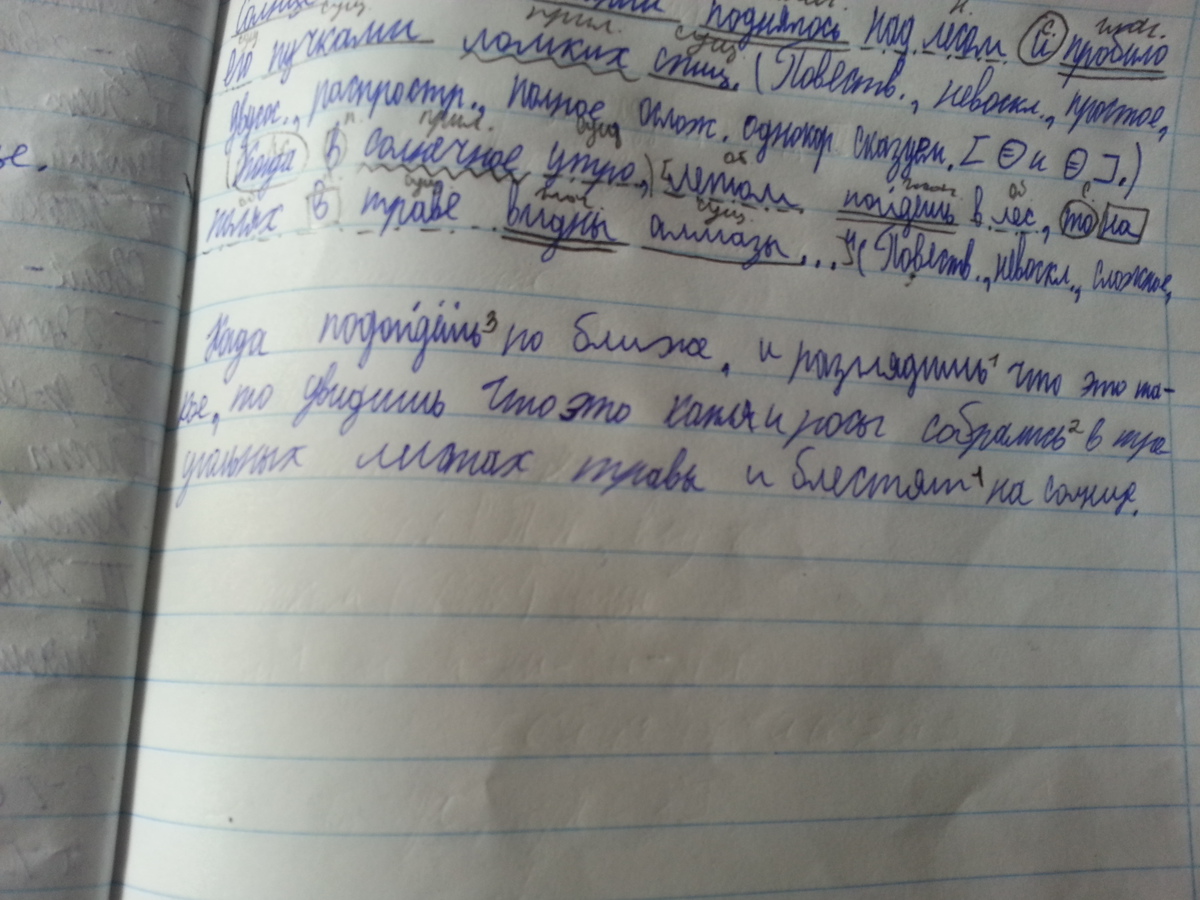 Солнце сущ. поднялось над лесом (и) пробило
его пучками ломких спиц. (Повеств., невоскл., простое,
двусос., распростр., полное, ослож. однокор сказуем. [ ⊖ и ⊖ ].)
Когда в солнечное утро, летом пойдёшь в лес, то на
полях в траве видны алмазы...(Повеств., невоскл., сложное,
Када подойдёшь³ по ближе, и разглядишь¹ что это та-
кое, то увидишь что это капли росы собрались² в тре
угольных листах травы и блестят¹ на солнце.
це.